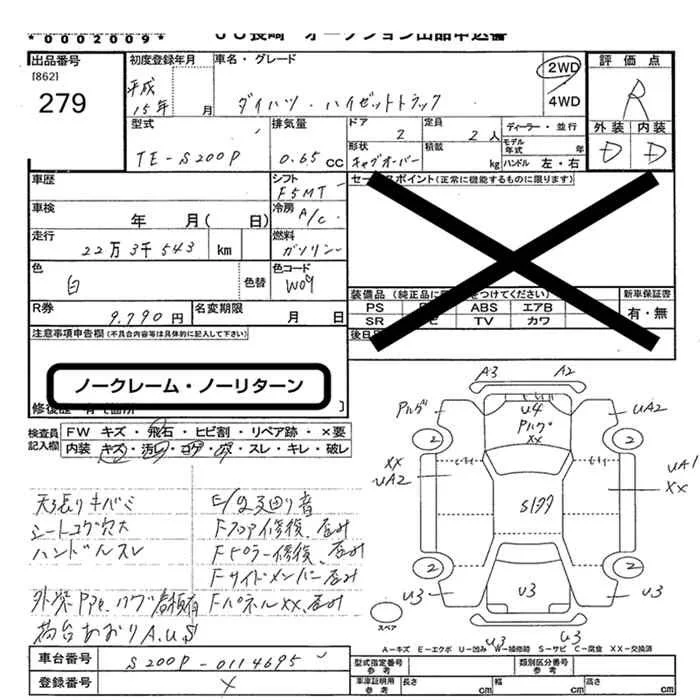 *0002009*
JU長崎 オークション出品申込書
出品番号
[862]
279
初度登録年月
平成
15年 月
車名・グレード
ダイハツ・ハイゼットトラック
2WD
4WD
評価点
R
外装 内装
D D
型式
TE-S200P
排気量
0.65 CC
ドア
2
定員
2人
ディーラー・並行
モデル
年式 年
形状
キャブオーバー
積載 kg
ハンドル 左・右
車歴
シフト
F5MT
車検 年 月( 日)
冷房
A/C
走行
22万3千543 km
燃料
ガソリン
色
白
色替
色コード
W09
R券
9.790円
名変期限
月 日
セールスポイント(正常に機能するものに限ります)
装備品(純正品に をつけてください)
PS ABS エアB
SR TV カワ
新車保証書
有・無
後日
注意事項申告欄(不具合内容等は具体的に記入して下さい)
ノークレーム・ノーリターン
修復歴
検査員
記入欄
FW キズ・飛石・ヒビ割・リペア跡・×要
内装 キズ・汚レ・コゲ・穴・スレ・キレ・破レ
天張りキバミ
シートコゲ穴大
ハンドルスレ
Fフロア修復、歪み
Fピラー修復、歪み
Fサイドメンバー歪み
FパネルXX、歪み
荷台あおりA.U.S
A3 A2
U4
XX
UA2
2 2
XX
UA2
UA1
XX
S177
2 2
U3 U3 U3
U3 U3
スペア
A-キズ E-エクボ U-凹み W-補修跡 S-サビ C-腐食 XX-交換済
車台番号
S200P-0114695
登録番号
×
型式指定番号
参考
類別区分番号
参考
車庫証明用
参考
長さ cm
幅 cm
高さ cm